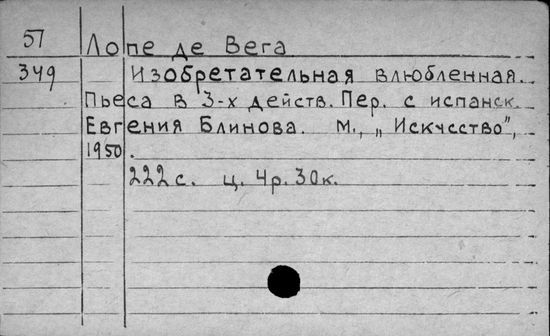 57 Лопе де Вега
349 Изобретательная влюбленная.
Пьеса в 3-х действ. Пер. с испанск.
Евгения Блинова. М., „Искусство",
1950.
222 с. ц. 4р. 30к.